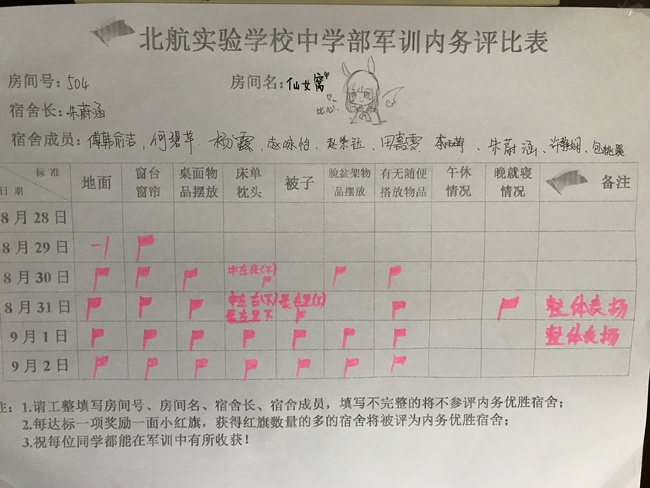 北航实验学校中学部军训内务评比表
房间号：504 房间名：仙女窝
比心
宿舍长：朱蔚涵
宿舍成员： 杨霞 赵咏怡 朱蔚涵
日期 标准 地面 窗台窗帘 桌面物品摆放 床单枕头 被子 脸盆架物品摆放 有无随便搭放物品 午休情况 晚就寝情况 备注
8月28日
8月29日 -1
8月30日
8月31日 中左右(下) 最左里下 整体表扬
9月1日 整体表扬
9月2日
注：1.请工整填写房间号、房间名、宿舍长、宿舍成员，填写不完整的将不参评内务优胜宿舍；
2.每达标一项奖励一面小红旗，获得红旗数量的多的宿舍将被评为内务优胜宿舍；
3.祝每位同学都能在军训中有所收获！